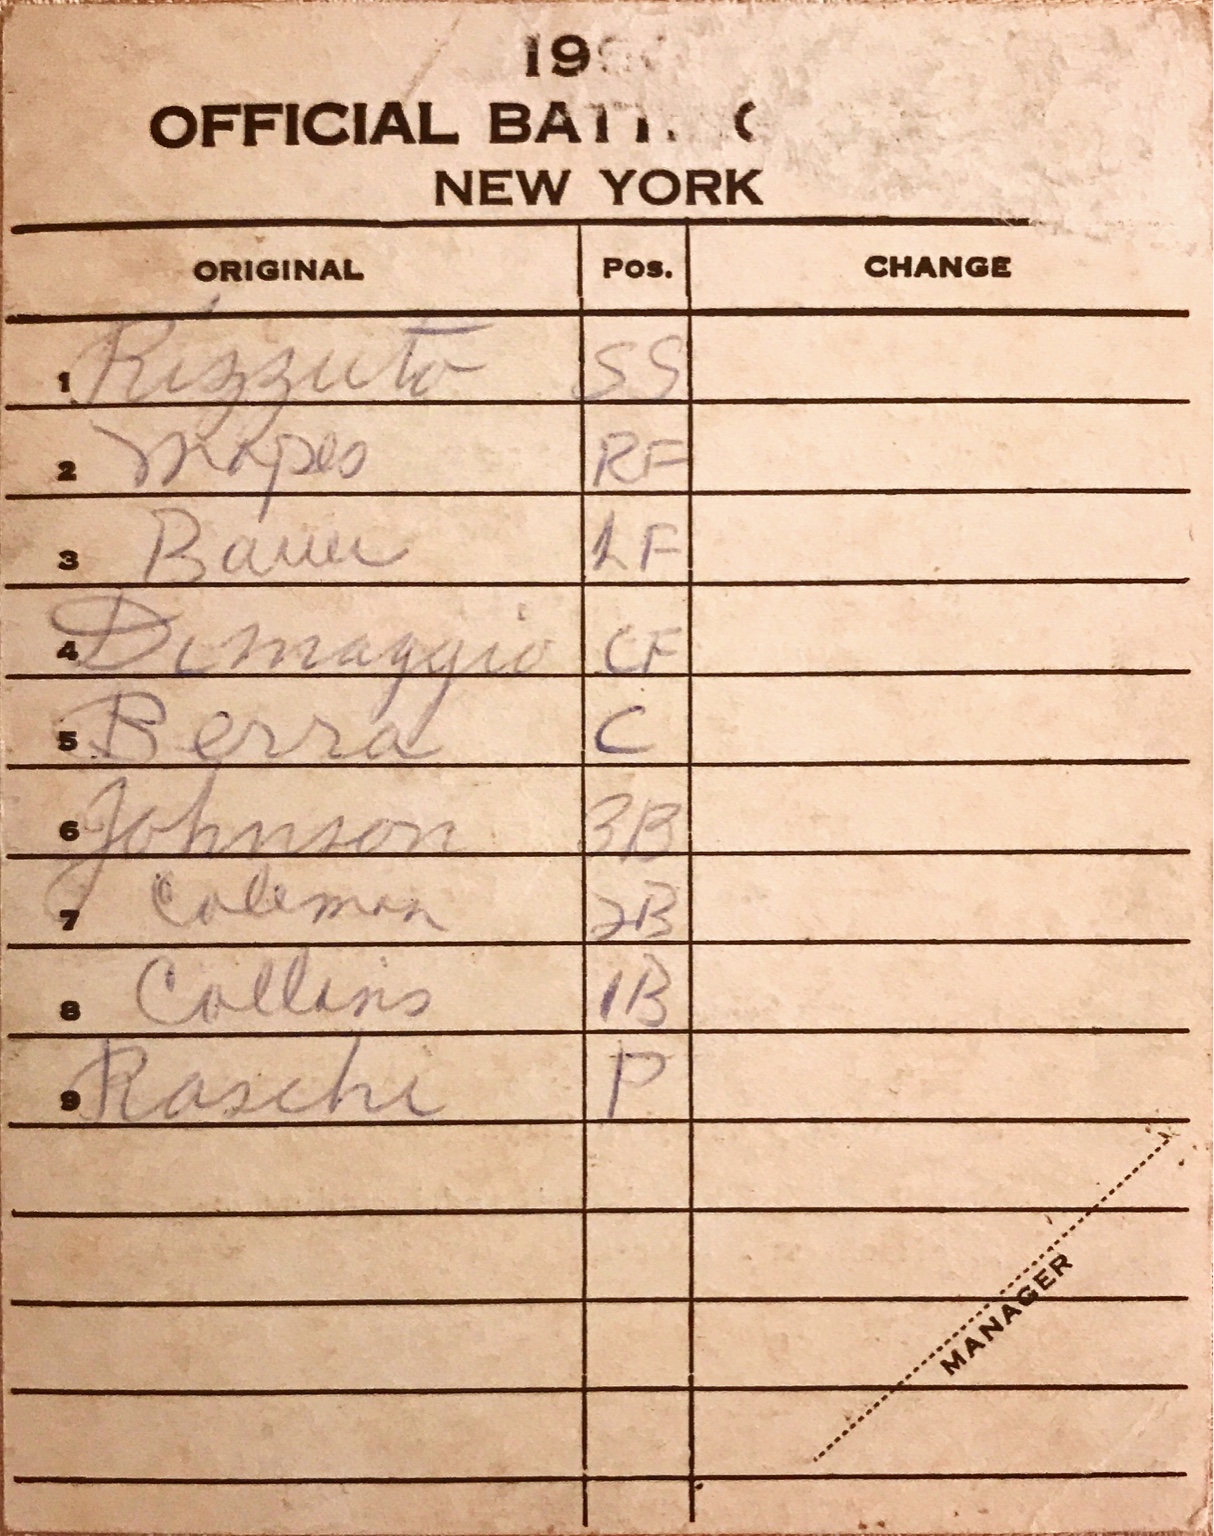 19
OFFICIAL BATT
NEW YORK
ORIGINAL Pos. CHANGE
1 Rizzuto SS
2 Mapes RF
3 Bauer LF
4 Dimaggio CF
5 Berra C
6 Johnson 3B
7 Coleman 2B
8 Collins 1B
9 Raschi P
MANAGER